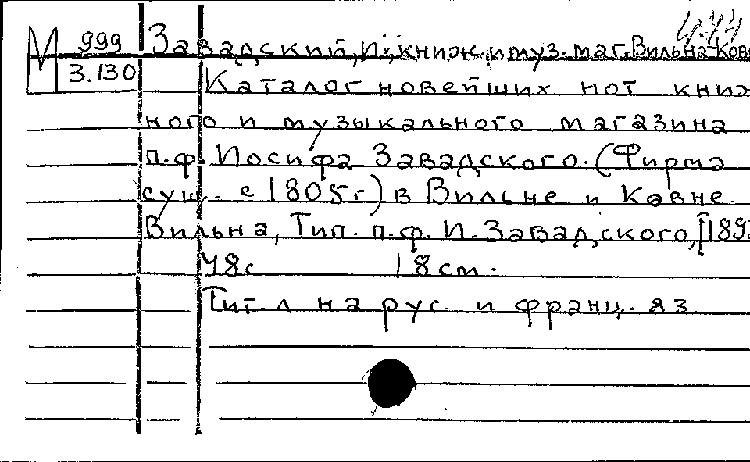 М 999 Завадский, И., книж. и муз. маг. Вильна-Ков
3.130
Каталог новейших нот книж
ного и музыкального магазина
п.ф. Иосифа Завадского. (Фирма
сущ. с 1805г.) в Вильне и Ковне.
Вильна, Тип. п.ф. И. Завадского, [189
48с 18см.
Тит. л на рус. и франц. яз